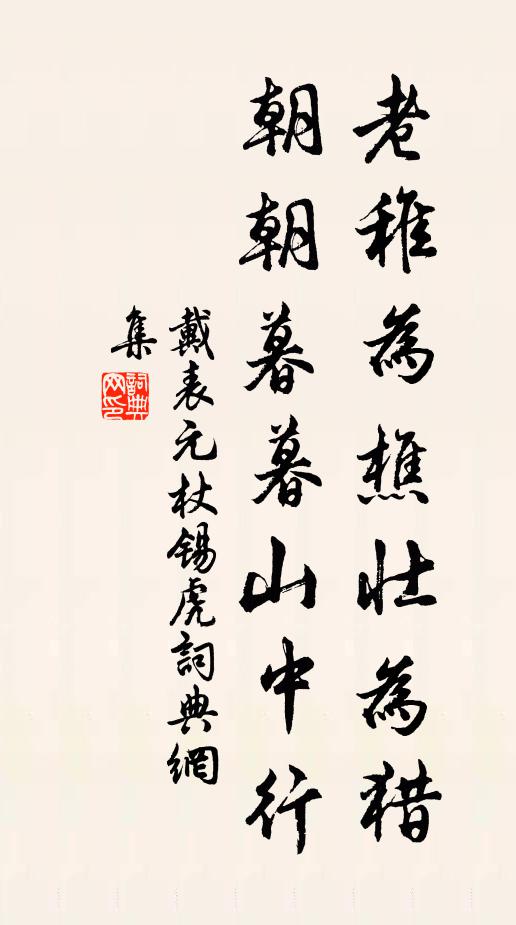 老稚為樵壮為猎
朝朝暮暮山中行
戴表元杖锡虎詞典網
集
詞典
网印